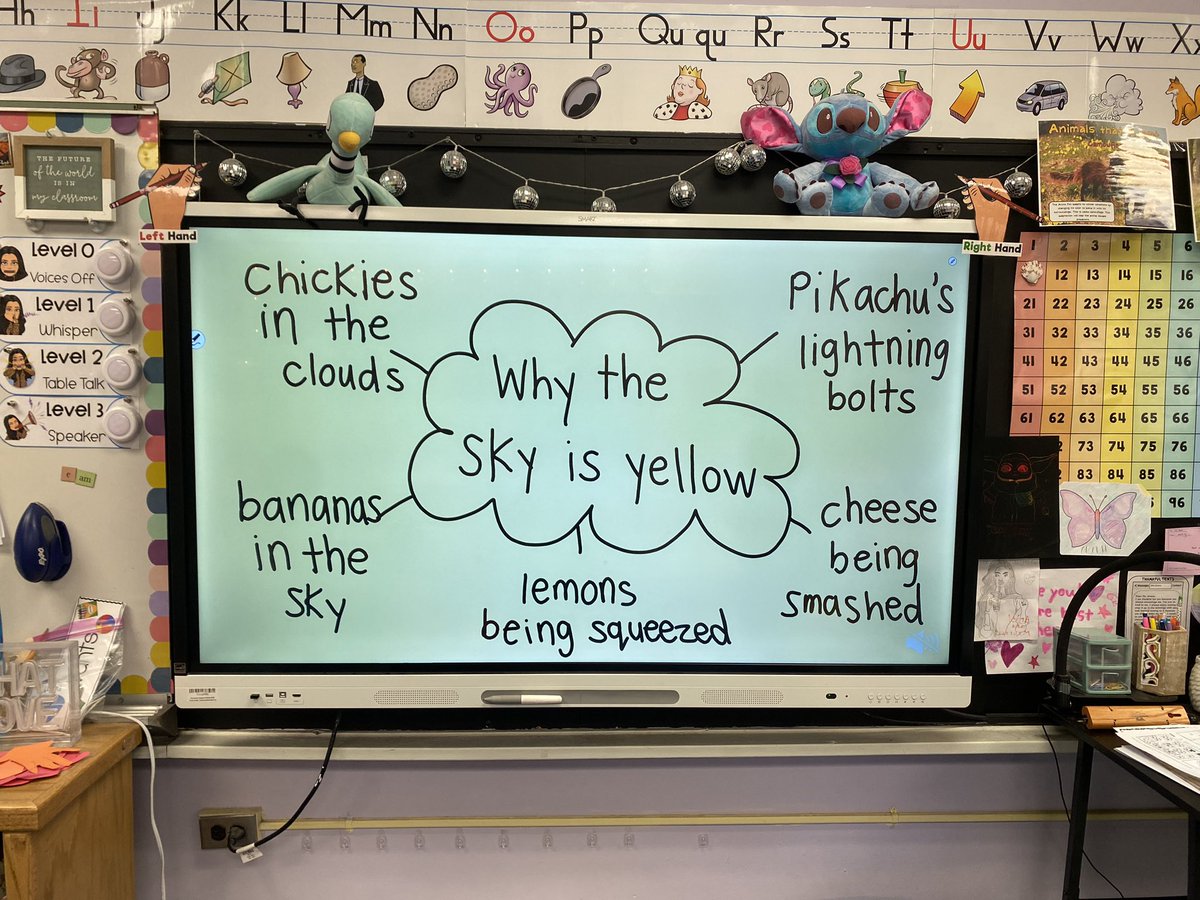 Hh Ii Jj Kk Ll Mm Nn Oo Pp Qu qu Rr Ss Tt Uu Vv Ww Xx
THE FUTURE
of the world
IS IN
my classroom
Left Hand
SMART
Right Hand
Animals that
Level 0
Voices Off
Level 1
Whisper
Level 2
Table Talk
Level 3
Speaker
am
EXPO
Chickies
in the
clouds
Why the
sky is yellow
Pikachu's
lightning
bolts
bananas
in the
sky
lemons
being squeezed
cheese
being
smashed
1 2 3 4 5 6
12 13 14 15 16
21 22 23 24 25 26
31 32 33 34 35 36
41 42 43 44 45 46
51 52 53 54 55 56
61 62 63 64 65 66
73 74 75 76
83 84 85 86
96
THANKFUL TEXTS